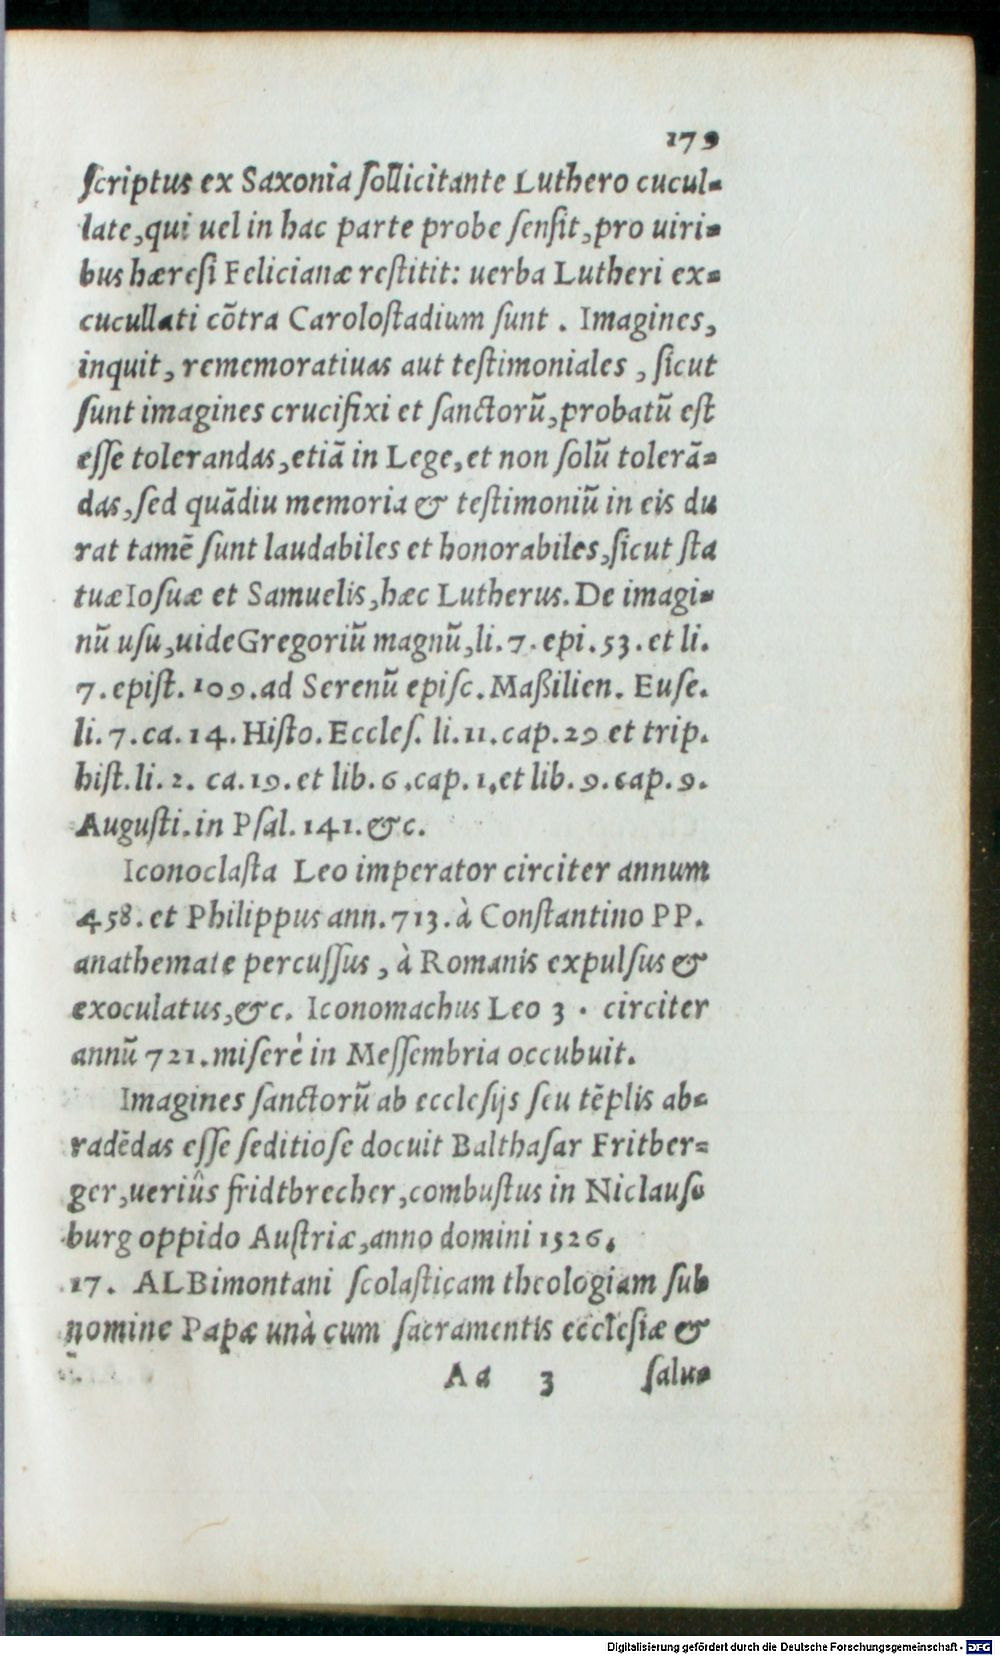 179
scriptus ex Saxonia sollicitante Luthero cucul-
late, qui uel in hac parte probe sensit, pro uiri-
bus hæresi Felicianæ restitit: uerba Lutheri ex-
cucullati cõtra Carolostadium sunt . Imagines,
inquit, rememoratiuas aut testimoniales , sicut
sunt imagines crucifixi et sanctorũ, probatũ est
esse tolerandas, etiã in Lege, et non solũ tolerã-
das, sed quãdiu memoria & testimoniũ in eis du
rat tamẽ sunt laudabiles et honorabiles, sicut sta
tuæ Iosuæ et Samuelis, hæc Lutherus. De imagi-
nũ usu, uide Gregoriũ magnũ, li. 7. epi. 53. et li.
7. epist. 109. ad Serenũ episc. Maßilien. Euse.
li. 7. ca. 14. Histo. Eccles. li. 11. cap. 29 et trip.
hist. li. 2. ca. 19. et lib. 6 . cap. 1, et lib. 9. cap. 9.
Augusti. in Psal. 141. &c.
Iconoclasta Leo imperator circiter annum
458. et Philippus ann. 713. à Constantino PP.
anathemate percussus , à Romanis expulsus &
exoculatus, &c. Iconomachus Leo 3 . circiter
annũ 721. miserè in Messembria occubuit.
Imagines sanctorũ ab ecclesijs seu tẽplis ab-
radẽdas esse seditiose docuit Balthasar Fritber-
ger, ueriûs fridtbrecher, combustus in Niclauso
burg oppido Austriæ, anno domini 1526.
17. ALBimontani scolasticam theologiam sub
nomine Papæ unà cum sacramentis ecclesiæ &
Aa 3 salu-
Digitalisierung gefördert durch die Deutsche Forschungsgemeinschaft - DFG